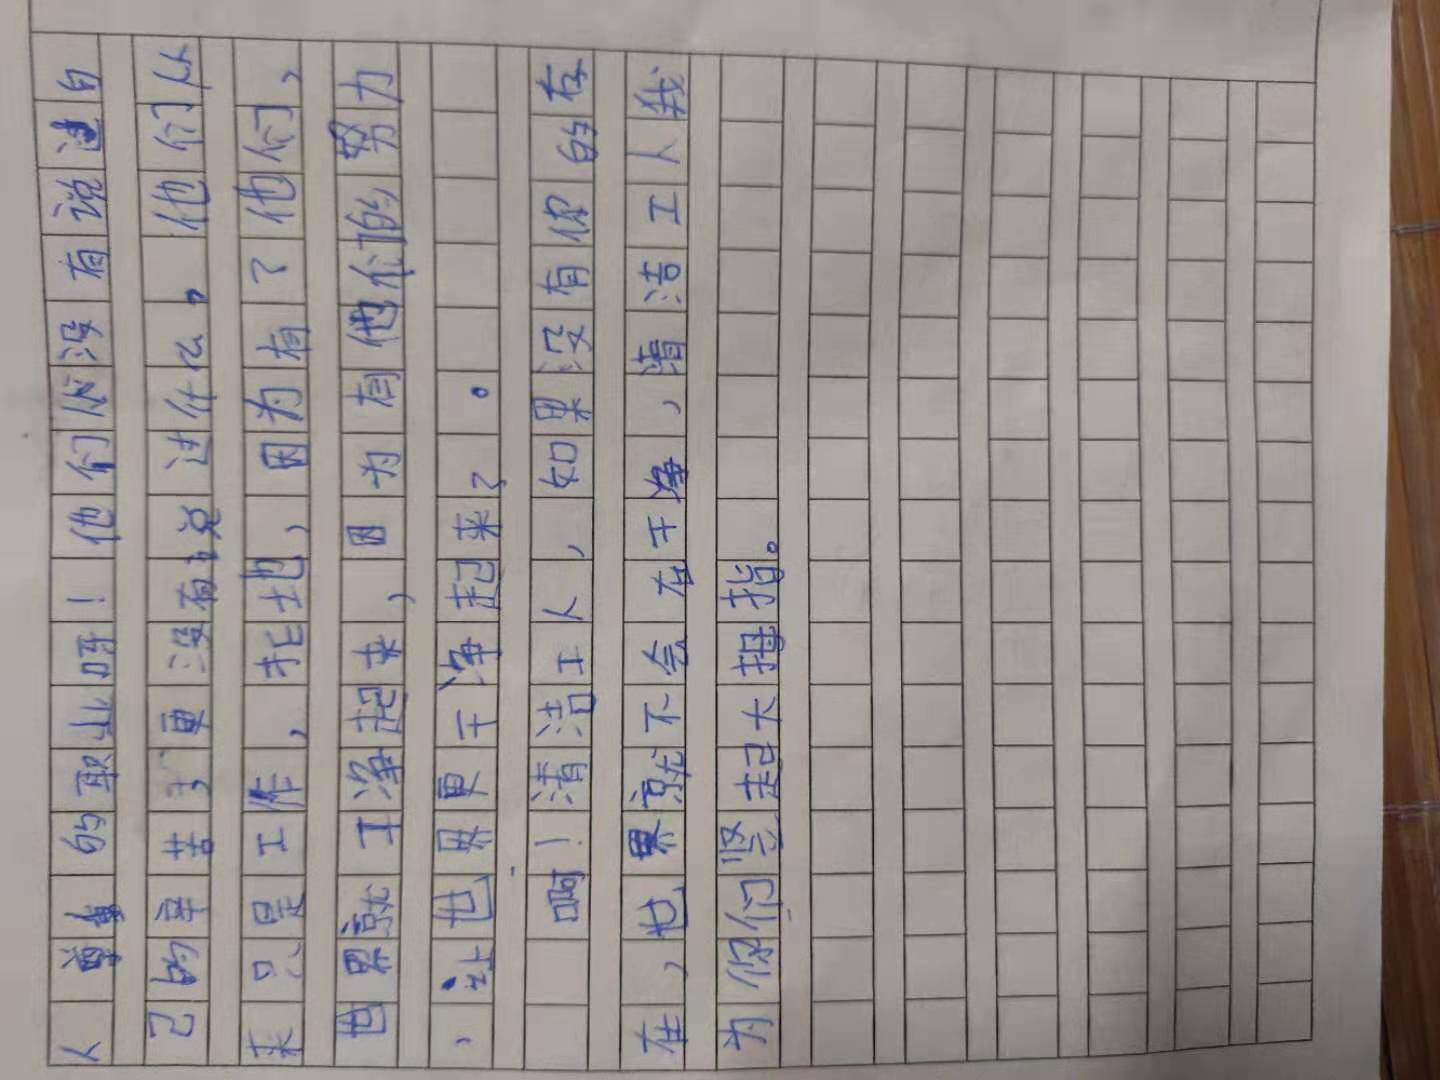 人尊重的职业呀！他们从没有说过自
己的辛苦，更没有说过什么。他们从
来只是工作，托地，因为有了他们，
世界就干净起来，因为有他们的努力
，让世界更干净起来了。
啊！清洁工人，如果没有你的存
在，世界就不会在干净，清洁工人我
为你们竖起大拇指。